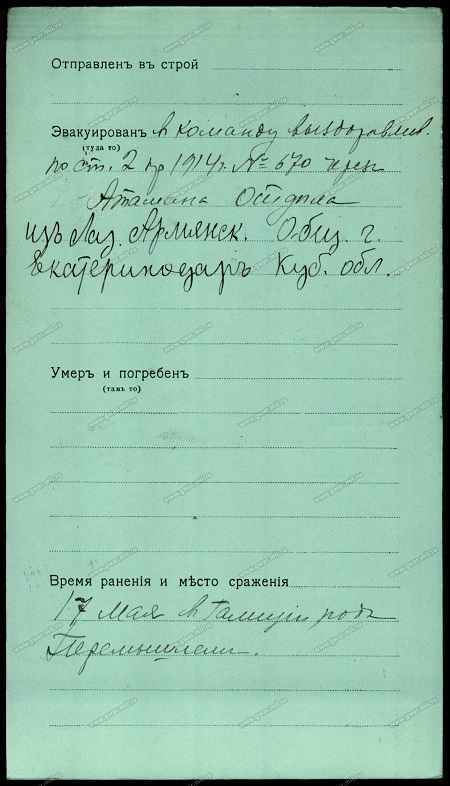 Отправленъ въ строй
Эвакуированъ в команду выздоравлив.
(туда то)
по ст. 2 пр 1914 г. № 670 чрез
Атамана Отдела
изъ Лаз. Армянск. Общ. г.
Екатеринодаръ Куб. обл.
Умеръ и погребенъ
(тамъ то)
Время раненія и мѣсто сраженія
17 мая в Галиціи подъ
Перемышлем.